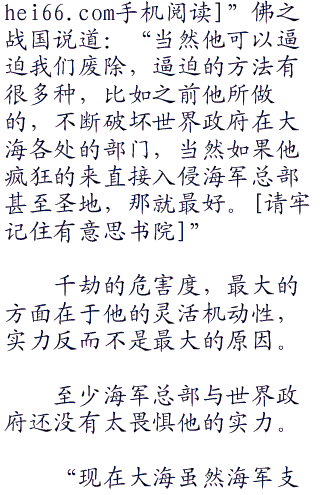 hei66.com手机阅读]”佛之
战国说道：“当然他可以逼
迫我们废除，逼迫的方法有
很多种，比如之前他所做
的，不断破坏世界政府在大
海各处的部门，当然如果他
疯狂的来直接入侵海军总部
甚至圣地，那就最好。[请牢
记住有意思书院]”
千劫的危害度，最大的
方面在于他的灵活机动性，
实力反而不是最大的原因。
至少海军总部与世界政
府还没有太畏惧他的实力。
“现在大海虽然海军支